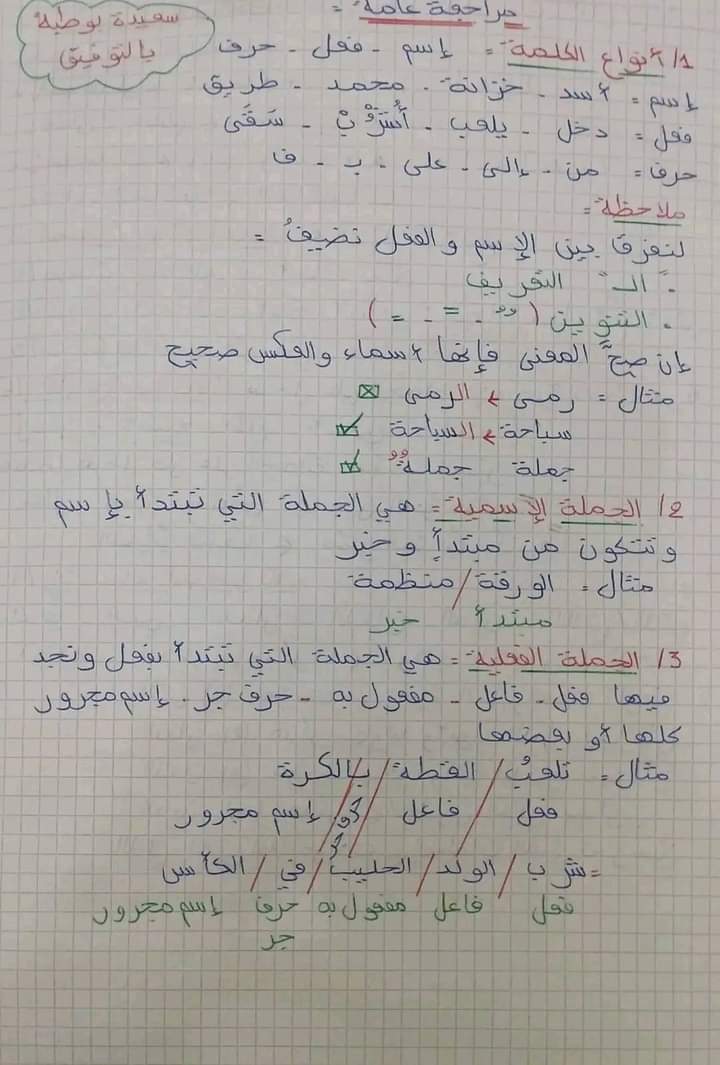 مراجعة عامة =
سعيدة بوطبة
بالتوفيق
1/ أنواع الكلمة = إسم - فعل - حرف
إسم = أسد - خزانة - محمد - طريق
فعل = دخل - يلعب - أُشْرُبْ - سَقَى
حرف = من - إلى - على - بـ - ف
ملاحظة =
لنفرق بين الإسم والفعل نضيفُ =
. "الـ" التعريف
. التنوين ( ٌ - ً - ٍ )
إن صحَّ المعنى فإنها أسماء والعكس صحيح
مثال = رمى > الرمى ☒
سباحة > السباحة ☑
جملة جملةٌ ☑
2/ الجملة الإسمية = هي الجملة التي تبتدأ بإسم
وتتكون من مبتدأ وخبر
مثال = الورقة / منظمة
مبتدأ خبر
3/ الجملة الفعلية = هي الجملة التي تبتدأ بفعل ونجد
فيها فعل - فاعل - مفعول به - حرف جر - إسم مجرور
كلها أو بعضها
مثال = تلعبُ / القطة / بـ / الكرة
فعل فاعل حرف جر إسم مجرور
= شرب / الولد / الحليبَ / في / الكأس
فعل فاعل مفعول به حرف إسم مجرور
جر